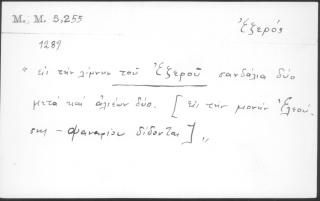 M. M. 5,255
Ἐξερός
1289
" εις την λίμνην τοῦ Ἐξεροῦ σανδάλια δύο
μετά και ἁλιέων δύο. [ εις την μονήν Ἐλεού-
σης - Φαναρίου δίδονται ] "